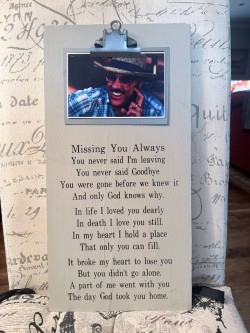 Missing You Always
You never said I'm leaving
You never said Goodbye
You were gone before we knew it
And only God knows why.
In life I loved you dearly
In death I love you still.
In my heart I hold a place
That only you can fill.
It broke my heart to lose you
But you didn't go alone.
A part of me went with you
The day God took you home.